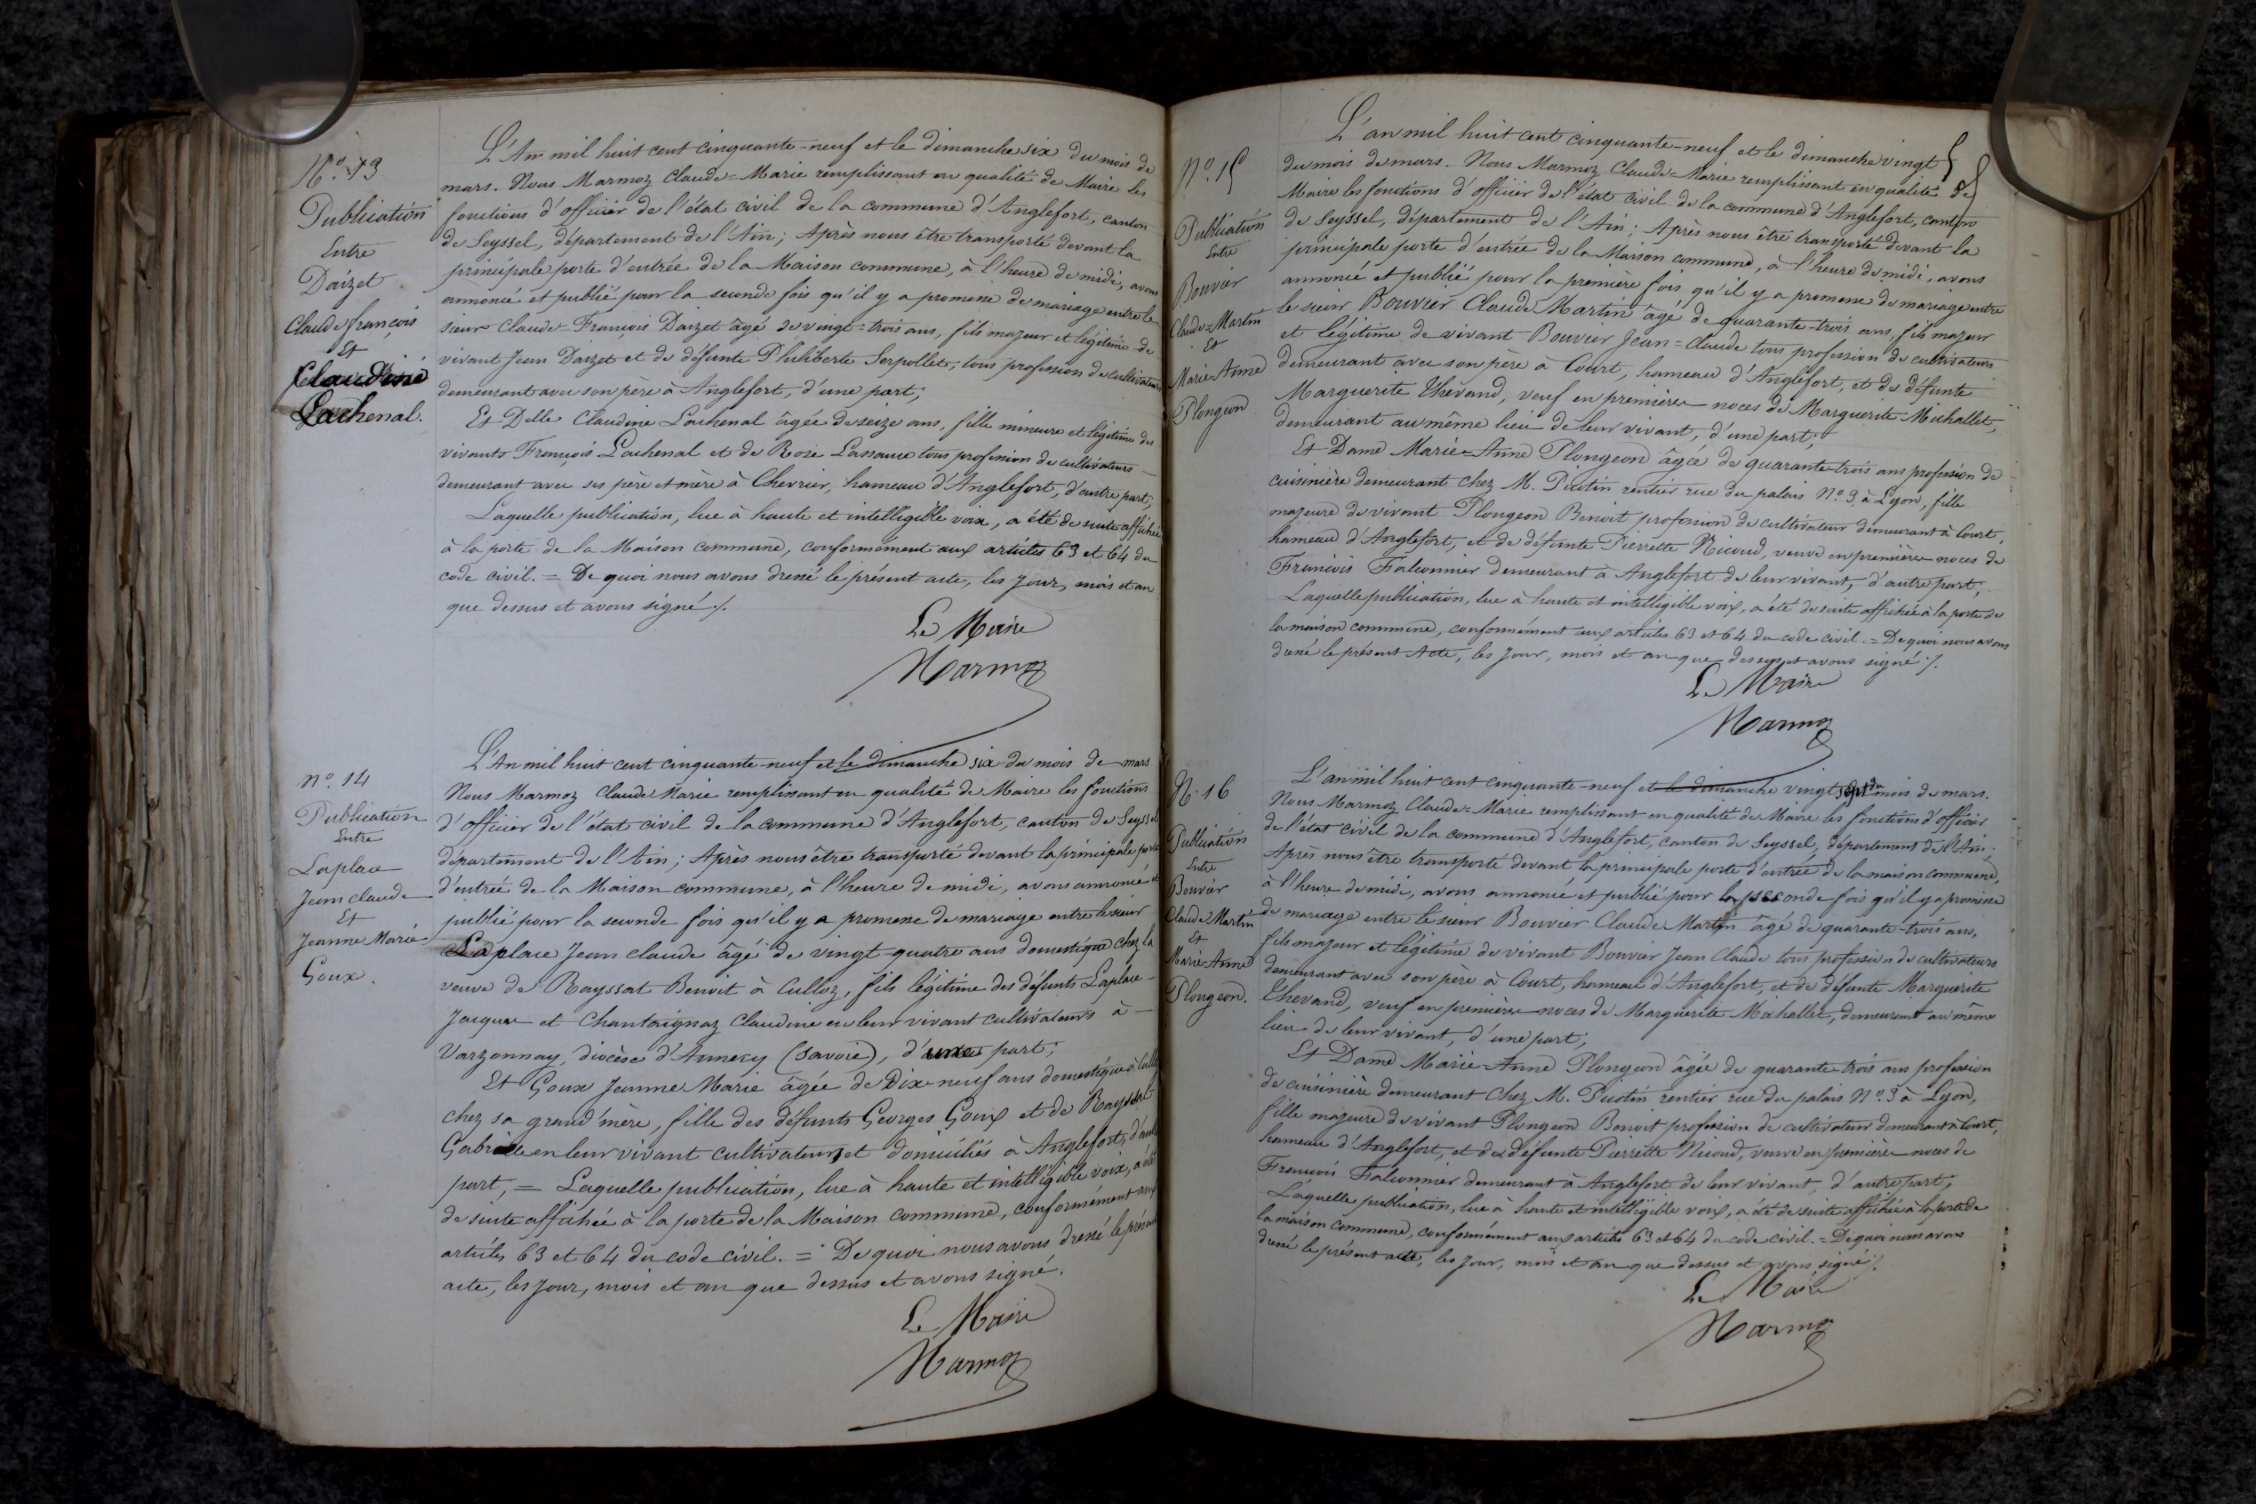 N.º 13
Publication
Entre
Daizet
Claude françois
Et
Claudine
Lachenal.
L'An mil huit cent cinquante-neuf et le dimanche six du mois de
mars. Nous Marmoz Claude-Marie remplissant en qualité de Maire les
fonctions d'officier de l'état civil de la commune d'Anglefort, canton
de Seyssel, département de l'Ain; Après nous être transporté devant la
principale porte d'entrée de la Maison commune, à l'heure de midi, avons
annoncé et publié pour la seconde fois qu'il y a promesse de mariage entre le
sieur Claude-François Daizet âgé de vingt-trois ans, fils majeur et légitime de
vivant Jean Daizet et de défunte Philiberte Serpollet, tous profession de cultivateurs
demeurant avec son père à Anglefort, d'une part;
Et Delle Claudine Lachenal âgée de seize ans, fille mineure et légitime des
vivants François Lachenal et de Rose Lassauce tous profession de cultivateurs
demeurant avec ses père et mère à Chevrier, hameau d'Anglefort, d'autre part;
Laquelle publication, lue à haute et intelligible voix, a été de suite affichée
à la porte de la Maison commune, conformément aux articles 63 et 64 du
code civil. = De quoi nous avons dressé le présent acte, les jour, mois et an
que dessus et avons signé ./.
Le Maire
Marmoz
N.º 14
Publication
Entre
Laplace
Jean claude
Et
Jeanne Marie
Goux.
L'An mil huit cent cinquante-neuf et le dimanche six du mois de mars
Nous Marmoz Claude Marie remplissant en qualité de Maire les fonctions
d'officier de l'état civil de la commune d'Anglefort, canton de Seyssel
département de l'Ain; Après nous être transporté devant la principale porte
d'entrée de la Maison commune, à l'heure de midi, avons annoncé et
publié pour la seconde fois qu'il y a promesse de mariage entre le sieur
Laplace Jean claude âgé de vingt quatre ans domestique chez la
veuve de Rayssat Benoit à Culloz, fils légitime des défunts Laplace
Jacques et Chantaignaz Claudine en leur vivant cultivateurs à
Varzonnay, diocèse d'Annecy (Savoie), d'une part;
Et Goux Jeanne Marie âgée de Dix-neuf ans domestique à Culloz
chez sa grand'mère, fille des défunts Georges Goux et de Rayssat
Gabrielle en leur vivant cultivateurs et domiciliés à Anglefort, d'autre
part, = Laquelle publication, lue à haute et intelligible voix, a été
de suite affichée à la porte de la Maison commune, conformément aux
articles 63 et 64 du code civil. = De quoi nous avons dressé le présent
acte, les jour, mois et an que dessus et avons signé.
Le Maire
Marmoz
N.º 15
Publication
Entre
Bouvier
Claude-Martin
Et
Marie-Anne
Plongeon
L'an mil huit cent cinquante-neuf et le dimanche vingt
du mois de mars. Nous Marmoz Claude-Marie remplissant en qualité de
Maire les fonctions d'officier de l'état civil de la commune d'Anglefort, canton
de Seyssel, département de l'Ain; Après nous être transporté devant la
principale porte d'entrée de la Maison commune, à l'heure de midi, avons
annoncé et publié pour la première fois qu'il y a promesse de mariage entre
le sieur Bouvier Claude Martin âgé de quarante-trois ans, fils majeur
et légitime de vivant Bouvier Jean-Claude tous profession de cultivateurs
demeurant avec son père à Court, hameau d'Anglefort, et de défunte
Marguerite Thevand, veuf en première noces de Marguerite Michallet,
demeurant au même lieu de leur vivant, d'une part;
Et Dame Marie-Anne Plongeon âgée de quarante-trois ans profession de
cuisinière demeurant chez M. rentier rue du palais N.º 3 à Lyon, fille
majeure de vivant Plongeon Benoit profession de cultivateur demeurant à Court,
hameau d'Anglefort, et de défunte Pierrette Nicoud, veuve en première noces de
François Falconnier demeurant à Anglefort de leur vivant, d'autre part;
Laquelle publication, lue à haute et intelligible voix, a été de suite affichée à la porte de
la maison commune, conformément aux articles 63 et 64 du code civil. = De quoi nous avons
dressé le présent Acte, les jour, mois et an que dessus et avons signé ./.
Le Maire
Marmoz
N.º 16
Publication
Entre
Bouvier
Claude Martin
Et
Marie-Anne
Plongeon.
L'an mil huit cent cinquante-neuf et le dimanche vingt sept du mois de mars.
Nous Marmoz Claude-Marie remplissant en qualité de Maire les fonctions d'officier
de l'état civil de la commune d'Anglefort, canton de Seyssel, département de l'Ain.
Après nous être transporté devant la principale porte d'entrée de la maison commune,
à l'heure de midi, avons annoncé et publié pour la seconde fois qu'il y a promesse
de mariage entre le sieur Bouvier Claude Martin âgé de quarante-trois ans,
fils majeur et légitime de vivant Bouvier Jean Claude tous profession de cultivateurs
demeurant avec son père à Court, hameau d'Anglefort, et de défunte Marguerite
Thevand, veuf en première noces de Marguerite Michallet, demeurant au même
lieu de leur vivant, d'une part;
Et Dame Marie-Anne Plongeon âgée de quarante-trois ans profession
de cuisinière demeurant chez M. rentier rue du palais N.º 3 à Lyon,
fille majeure de vivant Plongeon Benoit profession de cultivateur demeurant à Court,
hameau d'Anglefort, et de défunte Pierrette Nicoud, veuve en première noces de
François Falconnier demeurant à Anglefort de leur vivant, d'autre part;
Laquelle publication, lue à haute et intelligible voix, a été de suite affichée à la porte de
la maison commune, conformément aux articles 63 et 64 du code civil. = De quoi nous avons
dressé le présent acte, les jour, mois et an que dessus et avons signé ./.
Le Maire
Marmoz